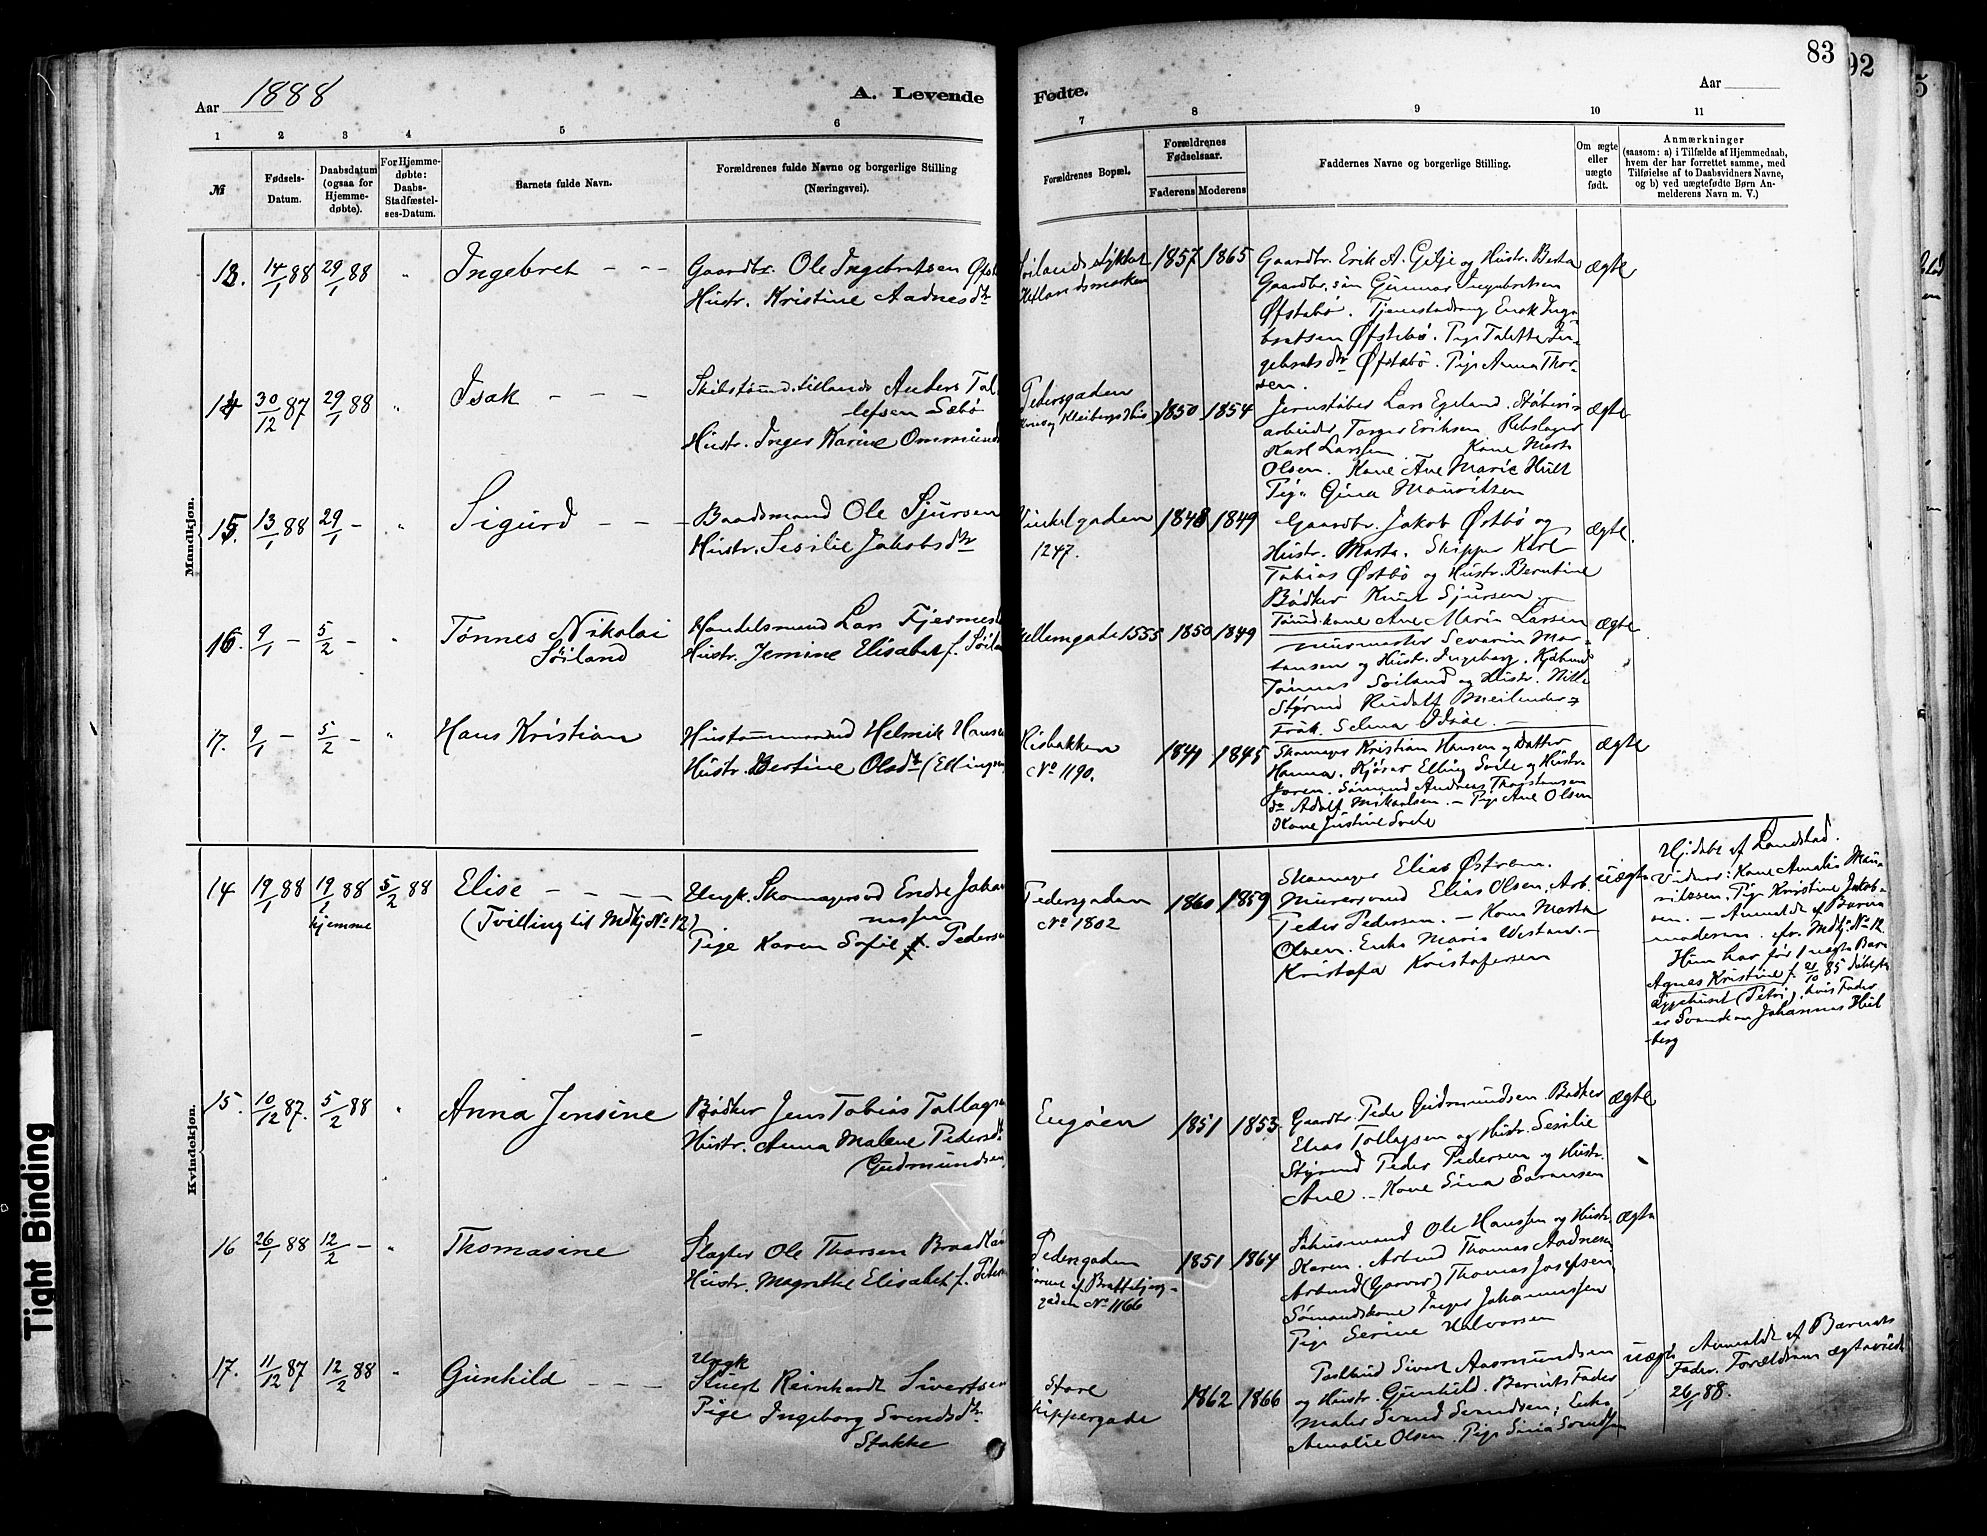 83
92
5
Aar 1888
A. Levende
Fødte.
Aar
1 2 3 4 5 6 7 8 9 10 11
№
Fødsels-
Datum.
Daabsdatum
(ogsaa for
Hjemme-
døbte).
For Hjemme-
døbte:
Daabs-
Stadfæstel-
ses-Datum.
Barnets fulde Navn.
Forældrenes fulde Navne og borgerlige Stilling
(Næringsvei).
Forældrenes Bopæl.
Forældrenes
Fødselsaar.
Faderens Moderens
Faddernes Navne og borgerlige Stilling.
Om ægte
eller
uægte
født.
Anmærkninger
(saasom: a) i Tilfælde af Hjemmedaab,
hvem der har forrettet samme, med
Tilføielse af to Daabsvidners Navne,
og b) ved uægtefødte Børn An-
melderens Navn m. V.)
Mandkjøn.
13. 14/1 88 29/1 88 " Ingebret
Gaardbr. Ole Ingebretsen Øfst
Hustr. Kristine Aadnesdtr
1857 1865
Gaardbr. Erik A. Gilje og Hustr. Berta
Gaardbr.søn Gunnar Ingebretsen
Øfstebø. Tjenestedreng Enok Inge
bretsen Øfstebø. Pige Talette In-
gebretsdtr Øfstebø. Pige Anna Thor-
sen.
ægte
14 30/12 87 29/1 88 " Isak
Anders Tol
lefsen Sæbø
Hustr. Inger Karine Ommund
Pedersgaden
1850 1854
Jernstøber Lars Egeland. Støberi-
arbeider Torger Eriksen Rebslager
Karl Larssen. Kone Marta
Olsen. Kone Ane Marie Hult
Pige Gina Mauritzen
ægte
15. 13/1 88 29/1 - " Sigurd
Baadsmand Ole Sjursen
Hustr. Sesilie Jakobsdtr
Vinkelgaden
1247.
1848 1849
Gaardbr. Jakob Østbø og
Hustr. Marta. Skipper Karl
Tobias Østbø og Hustr. Berntine
Bødker Knut Sjursen
ægte.
16. 9/1 - 5/2 - " Tønnes Nikolai
Søiland
Handelsmand Lars Tjermes
Hustr. Jemine Elisabet f. Søila
ellemgade 1555 1850 1849
Tømd.kone Ane Marie Larsen
Murmester Severin Mor-
tensen og Hustr. Ingeborg. Kjøbmd
Tønnes Søiland og Hustr. Nille
Styrmd Rudolf Meilender
Frøk. Selma
ægte
17. 9/1 - 5/2 - " Hans Kristian
Hustømmermd Helmik Hanse
Hustr. Bertine Olsdtr (Ellingse
Risbakken
No 1190.
1841 1845
Skomager Kristian Hansen og Datter
Hanna. Kjører Elling Svele og Hustr.
Joren. Sømand Andreas Thorstensen
do Adolf Mikaelsen. - Pige Ane Olsen
Kone Justine Svele
ægte
Kvindekjøn.
14 19/1 88 19/1 88 5/2 88
hjemme
Elise
(Tvilling til Mdkj No 12)
Ungk. Skomagersvd Endre Johan
nessen
Pige Karen Sofie f. Peders
Pedersgaden
No 1802
1860 1859
Skomager Elias Østrem.
Murersvend Elias Olsen. Arb.
Peder Pedersen. - Kone Marta
Olsen. Enke Maria Westen
Kristofa Kristofersen
uægte
Hj.døbt af Landstad.
Vidner: Kone Amalie Mau-
ritssen, Pige Kristine Jakob-
sen. - Anmeldt af Barne-
moderen. cfr. Mdkj. No 12
Hun har før 1 uægte Barn
Agnes Kristine f. 21/10 85 døbt fra
(Petri), hvis Fader
er Svensken Johannes Hul
berg
15. 10/12 87. 5/2 88 " Anna Jensine
Bødker Jens Tobias Tollags
Hustr. Anna Malene Pedersdt
(Gudmundsen)
Engøen
1851 1853
Gaardbr. Peder Gudmundsen Bødker
Elias Tollagsen og Hustr. Sesilie
Styrmd Peder Pedersen og Hustr.
Ane. - Kone Sina Sørensen
ægte
16 26/1 88 12/2 - " Thomasine
Slagter Ole Thorsen Braadla
Hustr. Magrethe Elisabet f. Peters
Pedersgaden
gaden No 1166
1851 1864
Ole Hanssen og Hustr.
Karen. Arbmd Thomas Aadnesen
Arbmd (Garver) Thomas Josefsen
Sømandskone Inger Johannessen
Pige Serine Halvorsen
ægte
17. 11/12 87 12/2 88 " Gunhild
Ungk
Stuert Reinhardt Sivertsen
Pige Ingeborg Svendsdtr
Stokke
Store
Skippergade
1862 1866
Postbud Sivert Aasmundsen
og Hustr. Gunhild. Barnets Fader
Maler Svend Svendsen; Enke
Amalie Olsen. Pige Sina Svendsen
uægte
Anmeldt af Barnets
Fader. Forældrene ægteviede
26/1 88.
Tight Binding